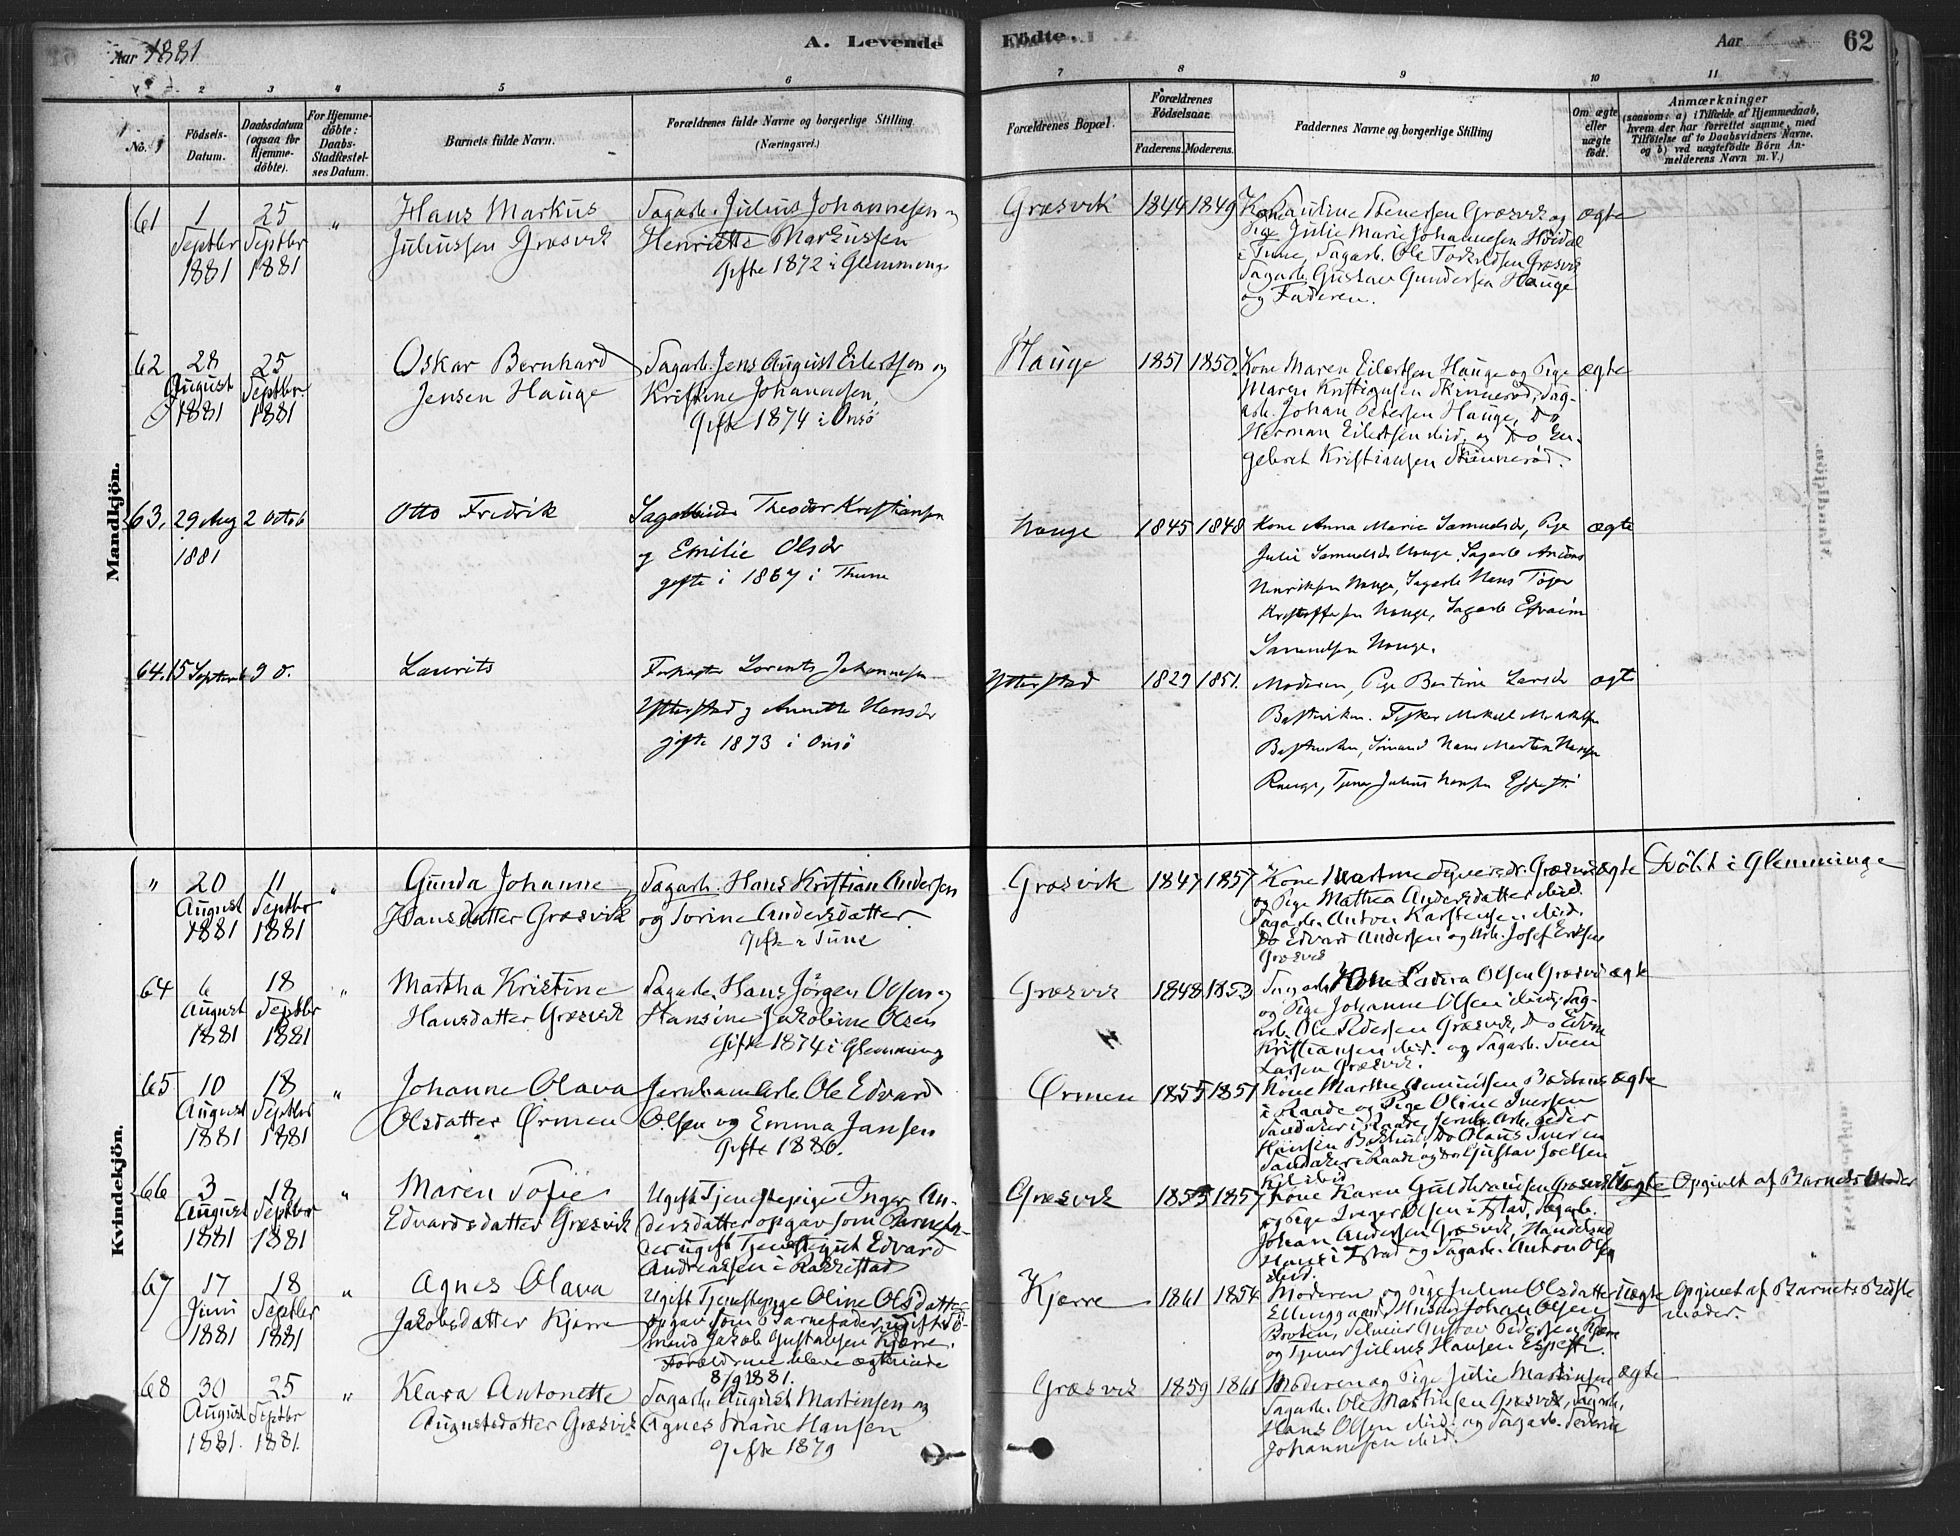 Aar 1881
A. Levende
Födte.
Aar
62
2 3 4 5 6 7 8 9 10 11
No.
Födsels-Datum.
Daabsdatum (ogsaa for Hjemme-döbte).
For Hjemme-döbte: Daabs-Stadfæstel-ses Datum.
Barnets fulde Navn.
Forældrenes fulde Navne og borgerlige Stilling.
(Næringsvei.)
Forældrenes Bopæl.
Forældrenes Födselsaar.
Faderens. Moderens.
Faddernes Navne og borgerlige Stilling
Om ægte eller uægte födt.
Anmærkninger
(saasom: a) i Tilfælde af Hjemmedaab,
hvem der har forrettet samme, med
Tilföielse af to Daabsvidners Navne,
og b) ved uægtefödte Börn An-
melderens Navn m. V.)
Mandkjön.
61 1 Septbr 1881
25 Septbr 1881
"
Hans Markus
Juliussen Græsvik
Sagarb. Julius Johannesen og
Henriette Markussen
Gifte 1872 i Glemminge
Græsvik
1844 1849
Kone Pauline Græsvik og
Pige Julie Marie Johannesen
i Tune, Sagarb. Ole Græsvik
Sagarb. Gustav Gundersen Hauge
og Faderen.
ægte
62 28 August 1881
25 Septbr. 1881
Oskar Bernhard
Jensen Hauge
Sagarb. Jens August Eilertsen og
Kristine Johannesen,
Gifte 1874 i Onsö
Hauge
1851 1850.
Kone Maren Eilertsen Hauge og Pige
Maren Kristiansen Skinneröd, Sag-
arb. Johan Petersen Hauge, Do
Herman Eilertsen ibid. og Do En-
gebret Kristiansen Skinneröd.
ægte
63. 29 Aug 1881
2 Octob
Otto Fredrik
Sagarbeider Theodor Kristiansen
og Emilie Olsdr
gifte i 1867 i Thune
Hauge
1845 1848
Kone Anna Marie Samuelsdr, Pige
Julie Samuelsdr Hauge, Sagarb
Henriksen Hauge, Sagarb Hans
Kristoffersen Hauge, Sagarb Efraim
Samuelsen Hauge.
ægte
64. 15 Septemb
9 O.
Laurits
Lorents Johannesen
Ytterstad og Annette Hansdr
gifte 1873 i Onsö
Ytterstad
1829 1851.
Moderen, Pige Bertine Larsdr
Fisker Mikael
Hans Martin Hansen
Rauge, Tjener Julius Hansen
ægte
Kvindekjön.
" 20 August 1881
11 Septbr 1881
"
Gunda Johanne
Hansdatter Græsvik
Sagarb. Hans Kristian Andersen
og Torine Andersdatter
Gifte i Tune
Græsvik
1847 1857
Kone Martine Græsvik
og Pige Mathea Andersdatter ibid.
Sagarb. Anton Karstensen ibid.
Do Edvard Andersen og Arb. Josef Eriksen
Græsvik
ægte
Döbt i Glemminge
64 6 August 1881
18 Septbr 1881
"
Martha Kristine
Hansdatter Græsvik
Sagarb. Hans Jörgen Olsen og
Hansine Jakobine Olsen
Gifte 1874 i Glemminge
Græsvik
1848 1853
Kone Laura Olsen Græsvik
og Pige Johanne Olsen ibid, Sag-
arb. Ole Pedersen Græsvik, Do
Kristiansen ibid. og Sagarb. Sven
Larsen Græsvik.
ægte
65 10 August 1881
18 Septbr 1881
"
Johanne Olava
Olsdatter Örmen
Jernbanearb. Ole Edvard
Olsen og Emma Jansen
Gifte 1880.
Örmen
1855 1851
Kone Marthe
i Raade og Pige Oline Iversen
i Raade, Jernb. Arb. Peder
Hansen Do Olaus Iversen
i Raade og Do Gustav Joelsen
ægte
66 3 August 1881
18 Septbr 1881
"
Maren Sofie
Edvardsdatter Græsvik
Ugift Tjenestepige Inger An-
dersdatter opgav som Barnefa-
der ugift Tjenestegut Edvard
Andreassen i Rakkestad
Græsvik
1855 1857
Kone Karen Guldbrandsen Græsvik
og Pige Inger Olsen i Sagarb.
Johan Andersen Græsvik,
og Sagarb. Anton Olsen
ibid.
Uægte
Opgivet af Barnets Moder
67 17 Juni 1881
18 Septbr 1881
"
Agnes Olava
Jakobsdatter Kjærre
Ugift Tjenestepige Oline Olsdatter
opgav som Barnefader ugift Sö-
mand Jakob Gustavsen Kjærre.
Forældrene bleve ægteviede
8/9 1881.
Kjærre
1861 1854
Moderen og Pige Juline Olsdatter
Johan Olsen
Gustav Pedersen
og Tjener Julius Hansen
uægte
Opgivet af Barnets Bedste
moder.
68 30 August 1881.
25 Septbr 1881.
"
Klara Antonette
Augustsdatter Græsvik
Sagarb. August Martinsen og
Agnes Marie Hansen
Gifte 1879
Græsvik
1859 1861
Moderen og Pige Julie Martinsen
Sagarb. Ole Martinsen Græsvik, Sagarb.
Hans Olsen ibid. og Sagarb.
Johannesen ibid.
ægte